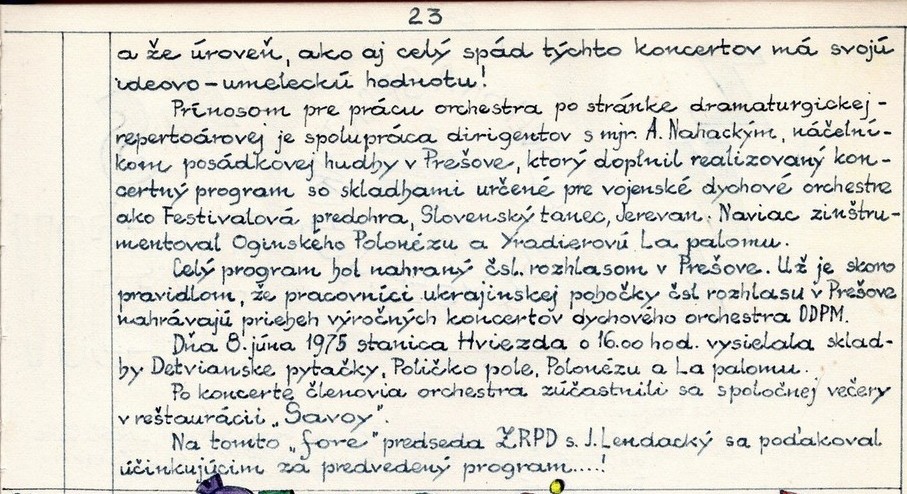 23
a že úroveň, ako aj celý spád týchto koncertov má svojú
ideovo-umeleckú hodnotu!
Prínosom pre prácu orchestra po stránke dramaturgickej-
repertoárovej je spolupráca dirigentov s mjr. A. Nahackým, náčelní-
kom posádkovej hudby v Prešove, ktorý doplnil realizovaný kon-
certný program so skladbami určené pre vojenské dychové orchestre
ako Festivalová predohra, Slovenský tanec, Jerevan. Naviac zinštru-
mentoval Oginského Polonézu a Yradierovú La palomu.
Celý program bol nahraný čsl. rozhlasom v Prešove. Už je skoro
pravidlom, že pracovníci ukrajinskej pobočky čsl rozhlasu v Prešove
nahrávajú priebeh výročných koncertov dychového orchestra ODPM.
Dňa 8. júna 1975 stanica Hviezda o 16.00 hod. vysielala sklad-
by Detvianske pytačky, Poličko pole, Polonézu a La palomu.
Po koncerte členovia orchestra zúčastnili sa spoločnej večery
v reštaurácii „Savoy".
Na tomto „fore" predseda ZRPD s. J. Lendacký sa poďakoval
účinkujúcim za predvedený program....!